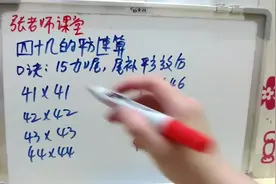 张老师课堂
四十几的平方速算
口诀：15加尾，尾补平方放后
41×41
42×42
43×43
44×44
46